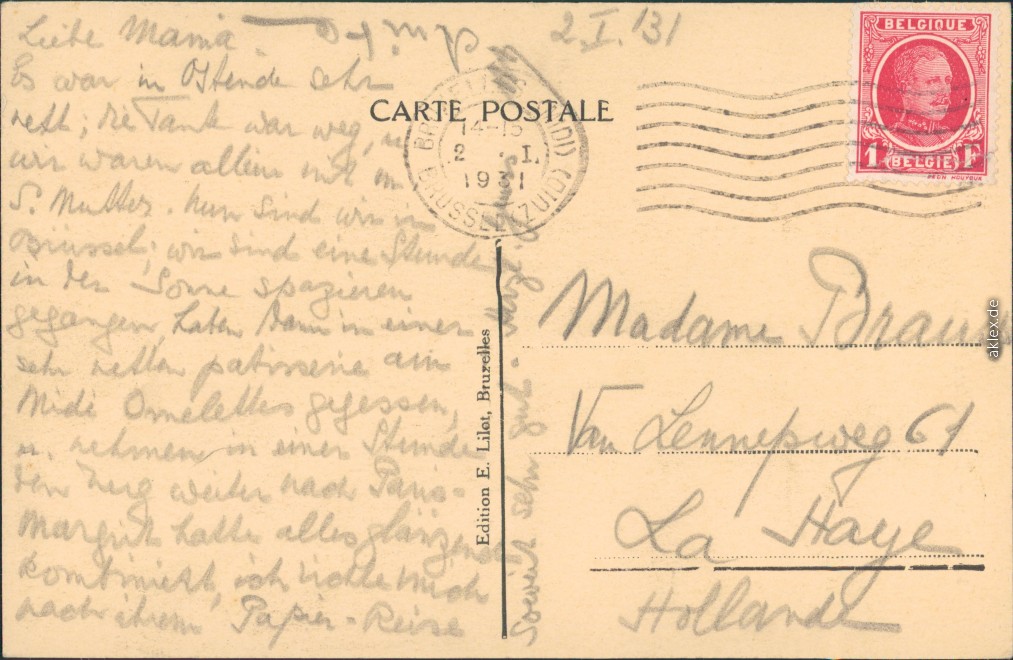 2.I.131
Liebe Mama
Es war in Ostende sehr
nett; die Tante war weg, u
wir waren allein mit
S. Mutter. Nun sind wir in
Brüssel; wir sind eine Stunde
in der Sonne spazieren
gegangen, haben dann in einer
sehr netten patisserie am
Midi Omelettes gegessen,
u. nehmen in einer Stunde
den Zug weiter nach Paris.
Margrit hatte alles glänzend
kombiniert, ich richte mich
nach ihrem Papier-Reise
soweit sehr gut.
CARTE POSTALE
14-15
2 I.
1931
BELGIQUE
1 F
BELGIË
Edition E. Lilot, Bruxelles
Madame Braun
Van Lennepweg 61
La Haye
Hollande
aklex.de